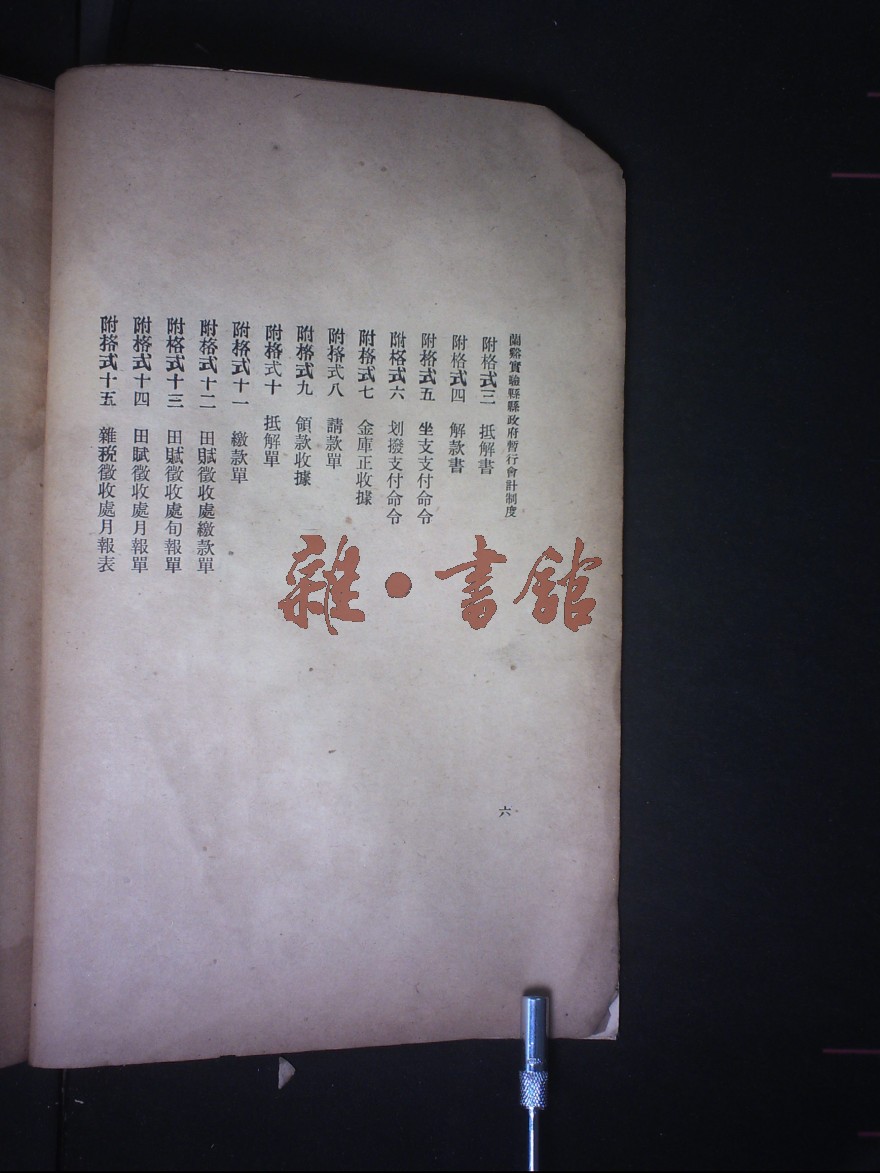 蘭谿實驗縣縣政府暫行會計制度
附格式三　抵解書
附格式四　解款書
附格式五　坐支支付命令
附格式六　划撥支付命令
附格式七　金庫正收據
附格式八　請款單
附格式九　領款收據
附格式十　抵解單
附格式十一　繳款單
附格式十二　田賦徵收處繳款單
附格式十三　田賦徵收處旬報單
附格式十四　田賦徵收處月報單
附格式十五　雜稅徵收處月報表
六
雜·書館